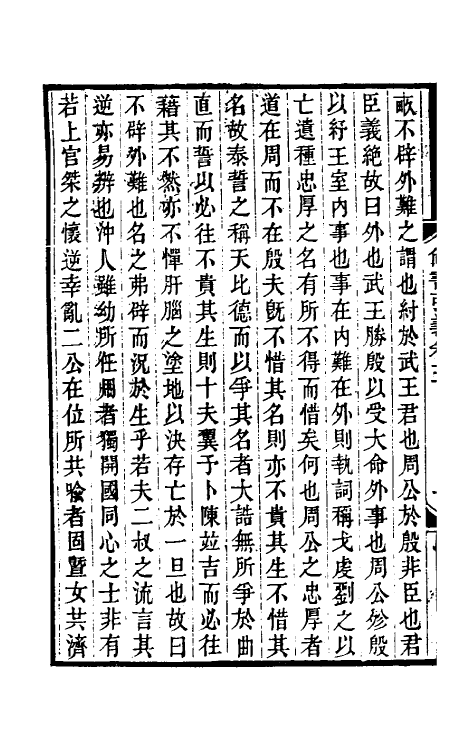 畝不辟外難之謂也紂於武王君也周公於殷非臣也君
臣義絕故曰外也武王勝殷以受大命外事也周公殄殷
以紓王室內事也事在內難在外則執詞稱戈虔劉之以
亡遺種忠厚之名有所不得而惜矣何也周公之忠厚者
道在周而不在殷夫旣不惜其名則亦不貴其生不惜其
名故泰誓之稱天比德而以爭其名者大誥無所爭於曲
直而誓以必往不貴其生則十夫翼子卜陳竝吉而必往
藉其不然亦不憚肝腦之塗地以決存亡於一旦也故曰
不辟外難也名之弗辟而況於生乎若夫二叔之流言其
逆亦易辨也沖人雖幼所任用者獨開國同心之士非有
若上官桀之懷逆幸亂二公在位所共喩者固曁女共濟